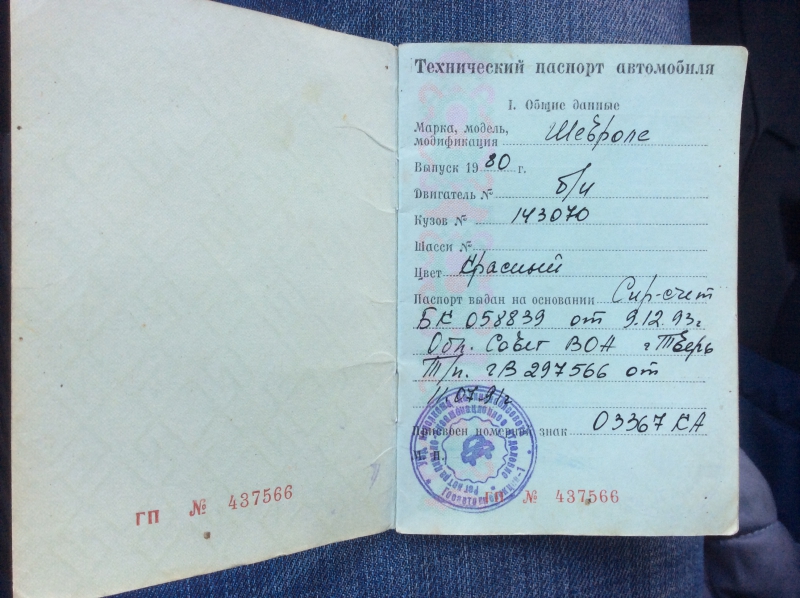 ГП № 437566
Технический паспорт автомобиля
I. Общие данные
Марка, модель,
модификация Шевроле
Выпуск 19 80 г.
Двигатель № б/н
Кузов № 143070
Шасси №
Цвет Красный
Паспорт выдан на основании Спр-счет
БК 058839 от 9.12.93г
Обл. Совет ВОА г Тверь
Т/п. гВ 297566 от
07.91г
Присвоен номерной знак 03367 КА
М. П.
ГП № 437566